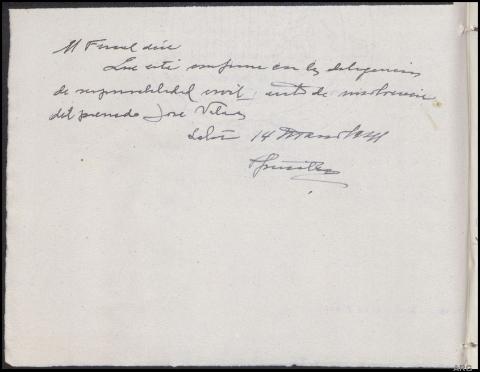 El Fiscal dice
Que está conforme con las diligencias
de responsabilidad civil, auto de insolvencia
del penado José
14 Marzo
ARG